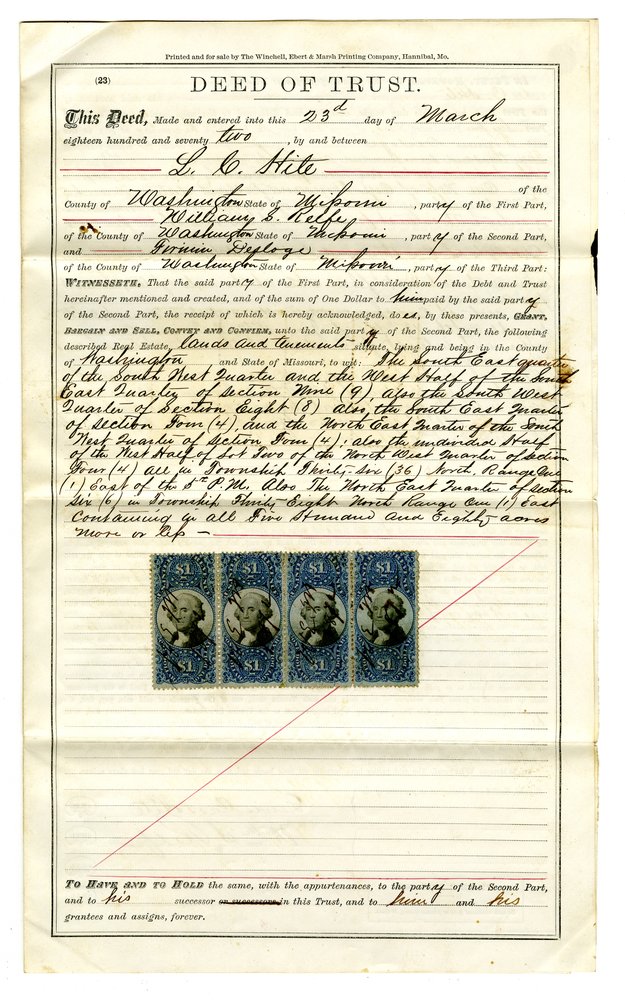 Printed and for sale by The Winchell, Ebert & Marsh Printing Company, Hannibal, Mo.
(23)
DEED OF TRUST.
This Deed, Made and entered into this 23d day of March
eighteen hundred and seventy two, by and between
L. C. Hite
of the
County of Washington State of Missouri, party of the First Part,
William S. Relfe
of the County of Washington State of Missouri, party of the Second Part,
and Firmin Desloge
of the County of Washington State of Missouri, party of the Third Part:
WITNESSETH, That the said party of the First Part, in consideration of the Debt and Trust
hereinafter mentioned and created, and of the sum of One Dollar to him paid by the said party
of the Second Part, the receipt of which is hereby acknowledged, does, by these presents, GRANT,
BARGAIN AND SELL, CONVEY AND CONFIRM, unto the said party of the Second Part, the following
described Real Estate, lands and tenements situate, lying and being in the County
of Washington and State of Missouri, to wit: The South East quarter
of the South West Quarter and the West Half of the South
East Quarter of Section Nine (9), also the South West
Quarter of Section Eight (8) also, the South East Quarter
of section Four (4), and the North East Quarter of the South
West Quarter of section Four (4), also the undivided Half
of the West Half of Lot Two of the North West Quarter of section
Four (4) all in Township Thirty-six (36) North, Range One
(1) East of the 5th P.M. Also The North East Quarter of section
six (6) in Township Thirty Eight North Range One (1) East
Containing in all Five Hundred and Eighty acres
more or less
$1 $1 $1 $1
$1 $1 $1 $1
TO HAVE AND TO HOLD the same, with the appurtenances, to the party of the Second Part,
and to his successor or successors in this Trust, and to him and his
grantees and assigns, forever.